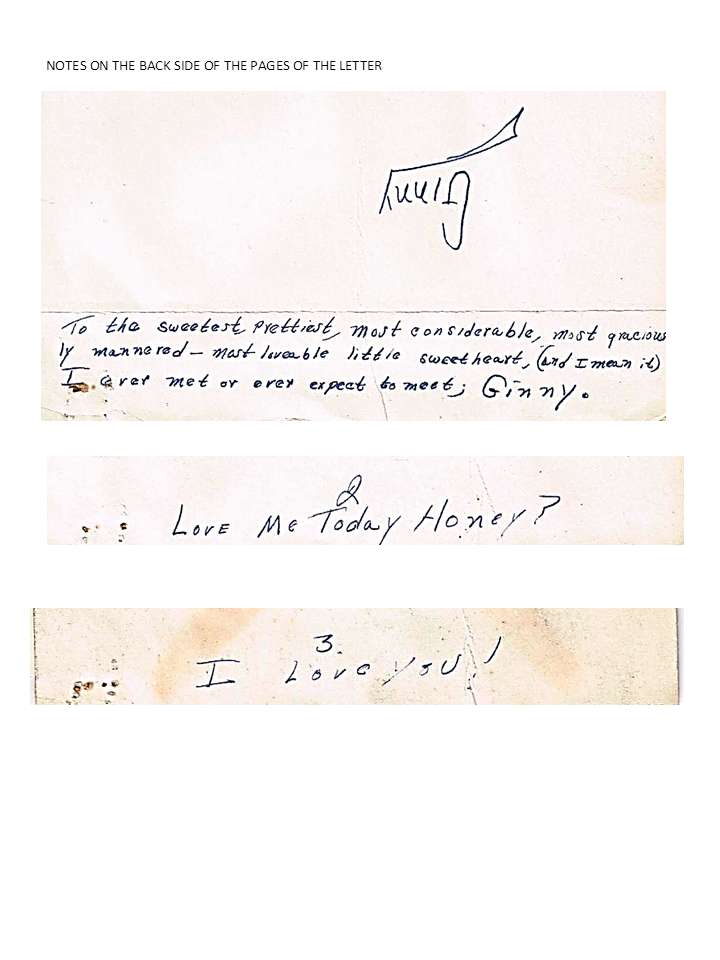 NOTES ON THE BACK SIDE OF THE PAGES OF THE LETTER
Ginny
To the sweetest, prettiest, most considerable, most gracious
ly mannered – most loveable little sweetheart, (and I mean it)
I ever met or ever expect to meet; Ginny.
2
Love Me Today Honey?
3.
I Love you!